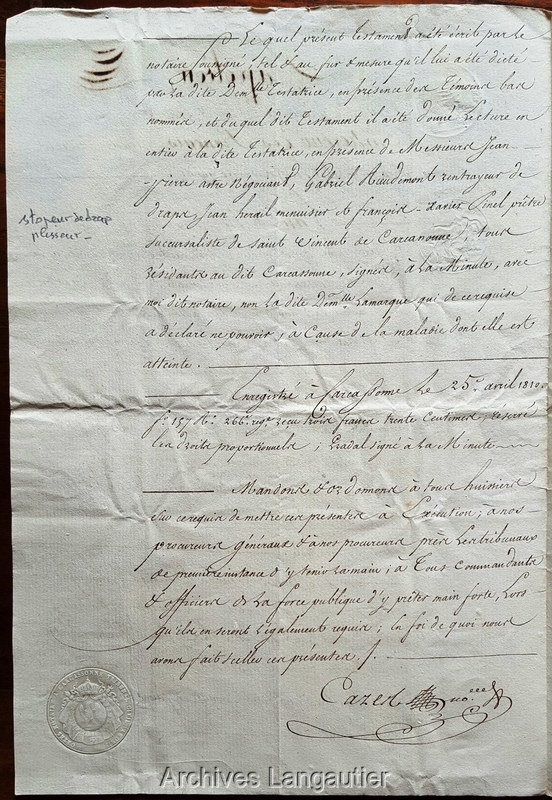 Le quel présent testament a été écrit par le
notaire soussigné, tel & au fur & mesure qu'il lui a été dicté
par la dite Dem.lle Testatrice, en présence des Témoins bas
nommés, et du quel dit Testament il a été donné Lecture en
entier à la dite Testatrice, en présence de Messieurs Jean-
pierre astre Négociant, Gabriel Rieudemont rentrayeur de
draps, Jean herail menuisier & françois-xavier Pinel prêtre
succursaliste de saint vincent de Carcassonne, tous
résidants au dit Carcassonne, signés, à La Minute, avec
moi dit notaire, non la dite Dem.lle Lamarque qui de ce requise
a déclaré ne pouvoir, à Cause de la maladie dont elle est
atteinte.
stopeur de drap
plisseur -
Enregistré à Carcassonne Le 25. avril 1810.
f.o 157 R.o 266. reçu trois francs trente Centimes, réservé
les droits proportionnels ; Pradal signé à La Minute
Mandons & ordonnons à tous huissiers
sur ce requis de mettre ces présentes à Exécution ; a nos
procureurs généraux & à nos procureurs près Les tribunaux
de première instance d'y tenir La main ; à Tous Commandants
& officiers de La force publique d'y prêter main forte, Lors
qu'ils en seront Légalement requis ; En foi de quoi nous
avons fait sceller ces présentes.
Cazes
Archives Langautier